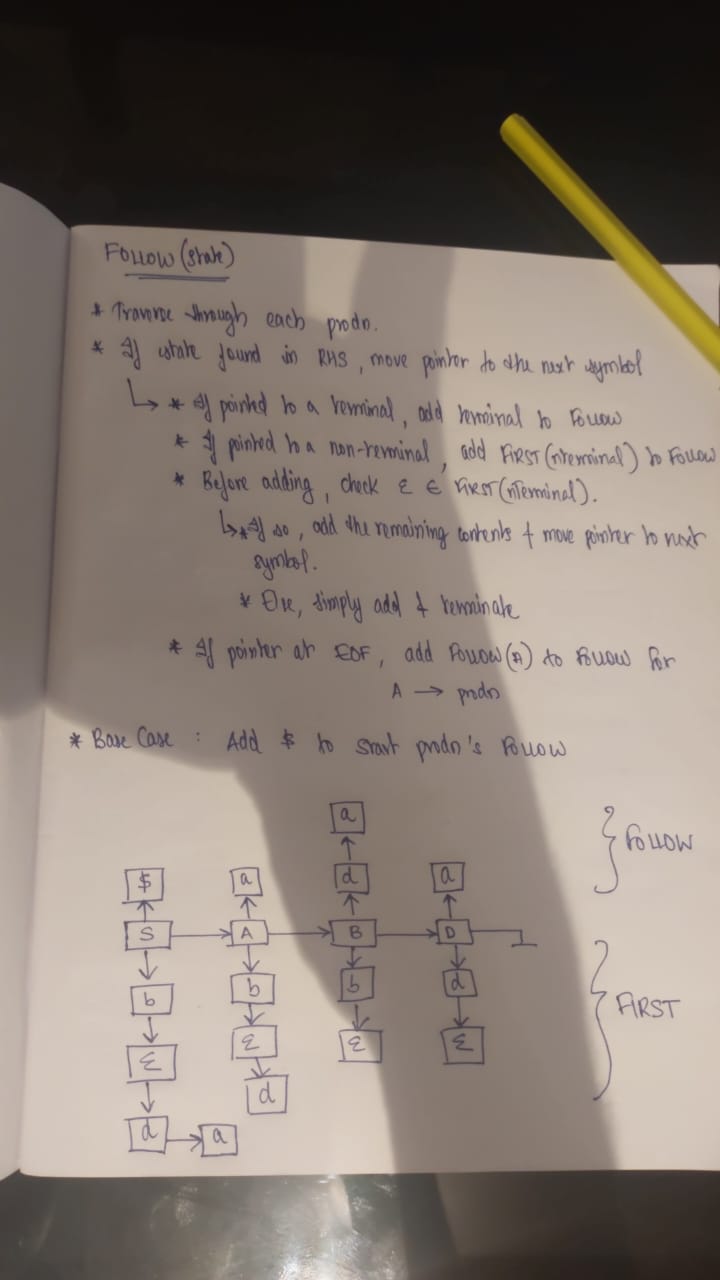 FOLLOW (state)
* Traverse through each prodn.
* If state found in RHS, move pointer to the next symbol
↳ * If pointed to a terminal, add terminal to FOLLOW
* If pointed to a non-terminal, add FIRST(nterminal) to FOLLOW
* Before adding, check ε ∈ FIRST(nTerminal).
↳ * If so, add the remaining contents & move pointer to next
symbol.
* Else, simply add & terminate
* If pointer at EOF, add FOLLOW(A) to FOLLOW for
A → prodn
* Base Case : Add $ to start prodn's FOLLOW
a
$ a d a } FOLLOW
S → A → B → D
b b b d } FIRST
ε ε ε ε
d → a d